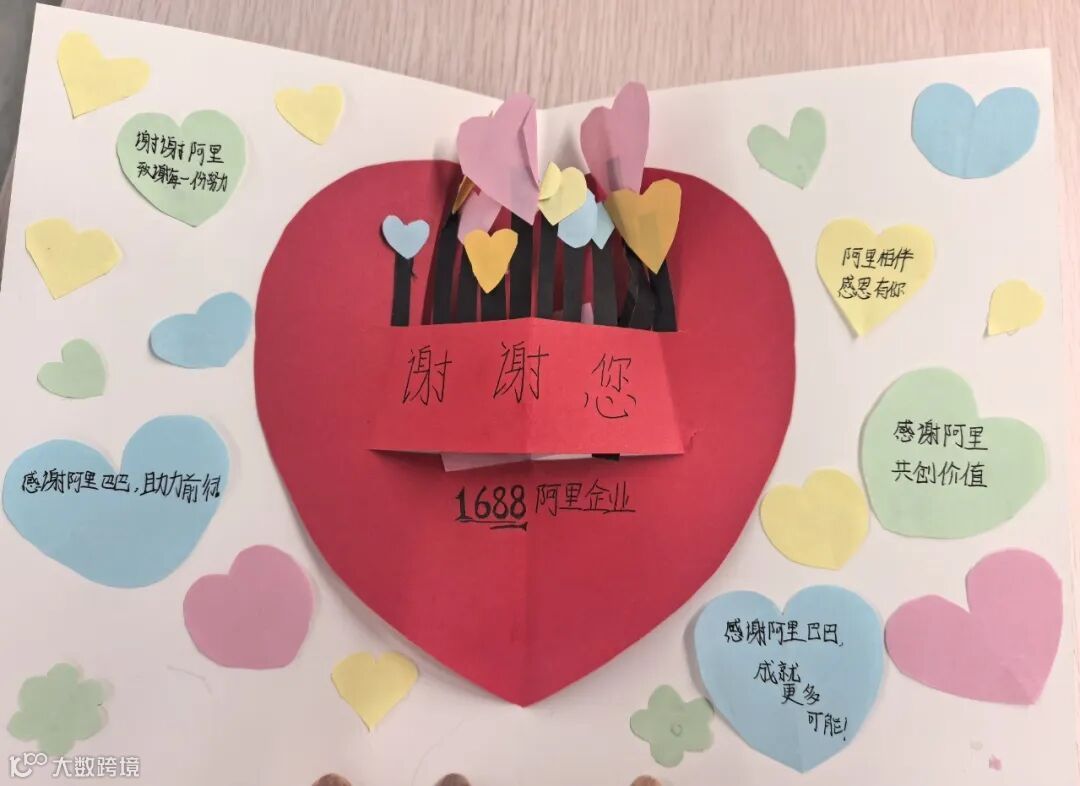 谢谢阿里
致谢每一份努力
阿里相伴
感恩有你
谢谢您
感谢阿里
共创价值
感谢阿里巴巴，助力前行
1688 阿里企业
感谢阿里巴巴，
成就
更多
可能！
大数跨境